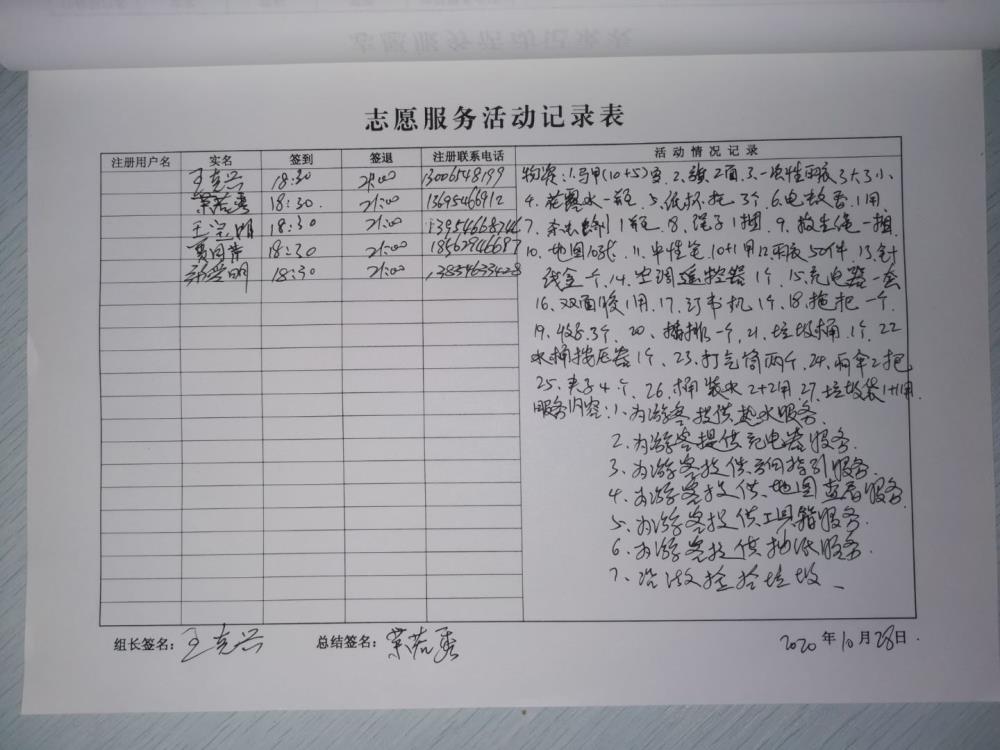 志愿服务活动记录表
注册用户名 实名 签到 签退 注册联系电话 活动情况记录
王克兴 18:30 21:00 13006548199
荣若秀 18:30. 21:00 13695466912
王 明 18:30 21:00
18:30 21:00 18562946687
明 18:30 21:00
物资:1.马甲(10+5)蓝 2. 旗2面 3.一次性雨衣3大3小
4.花露水一瓶 5.纸杯 托 3个 6.电蚊香 1用
7.杀虫剂 1瓶 8.绳子1捆 9.救生绳一捆
10.地图10张 11.中性笔 10+1用12雨衣50件 13.针
线盒一个.14.空调遥控器1个.15.充电器一套
16.双面胶1用.17.订书机1个.18.拖把一个.
19. 3个. 20、 一个.21.垃圾桶.1个.22
水桶按压器1个.23.打气筒两个.24.雨伞2把
25.夹子4个.26.桶装水2+2用27.垃圾袋1+1用.
服务内容:1.为游客提供热水服务.
2.为游客提供充电器服务.
3.为游客提供方向指引服务.
4.为游客提供地图查看服务
5.为游客提供工具箱服务.
6.为游客提供抽纸服务.
7.沿微捡拾垃圾.
组长签名:王克兴 总结签名:荣若秀 2020年10月28日.